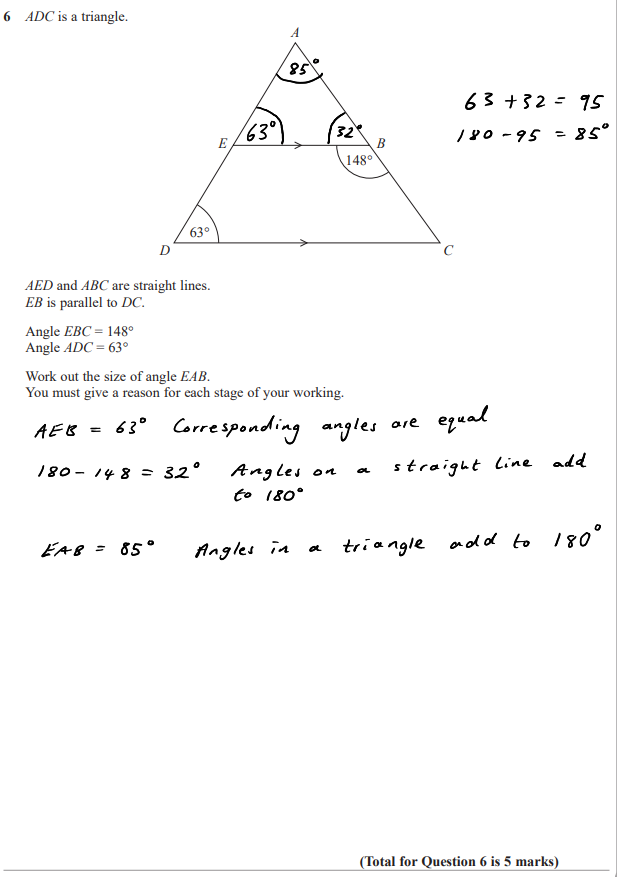 6 ADC is a triangle.
A
85°
63 + 32 = 95
180 - 95 = 85°
E 63° 32° B
148°
63°
D C
AED and ABC are straight lines.
EB is parallel to DC.
Angle EBC = 148°
Angle ADC = 63°
Work out the size of angle EAB.
You must give a reason for each stage of your working.
AEB = 63° Corresponding angles are equal
180 - 148 = 32° Angles on a straight line add
to 180°
EAB = 85° Angles in a triangle add to 180°
(Total for Question 6 is 5 marks)